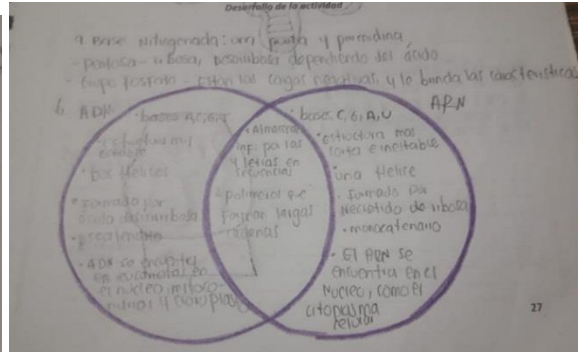 Desarrollo de la actividad
a Base Nitrogenada: una purina y pirimidina
- pentosa - ribosa, Desoxirribosa dependiendo del ácido
- Grupo fosfato - están las cargas negativas y le brinda las características
b. ADN
ARN
• bases A, C, G, T
estructura muy
• Dos Hélices
• Formado por
ácido desoxirribosa
- ADN se encuentra
en eucariotas en
el núcleo, mitoco-
ndrias y cloroplas
• Almacenan
inf por las
4 letras en
secuencias
• polímeros que
Forman largas
cadenas
• bases C, G, A, U
• estructura mas
corta e inestable
• una Helice
• formado por
de ribosa
• monocatenario
• El ARN se
encuentra en el
Nucleo, como el
citoplasma
celular
27